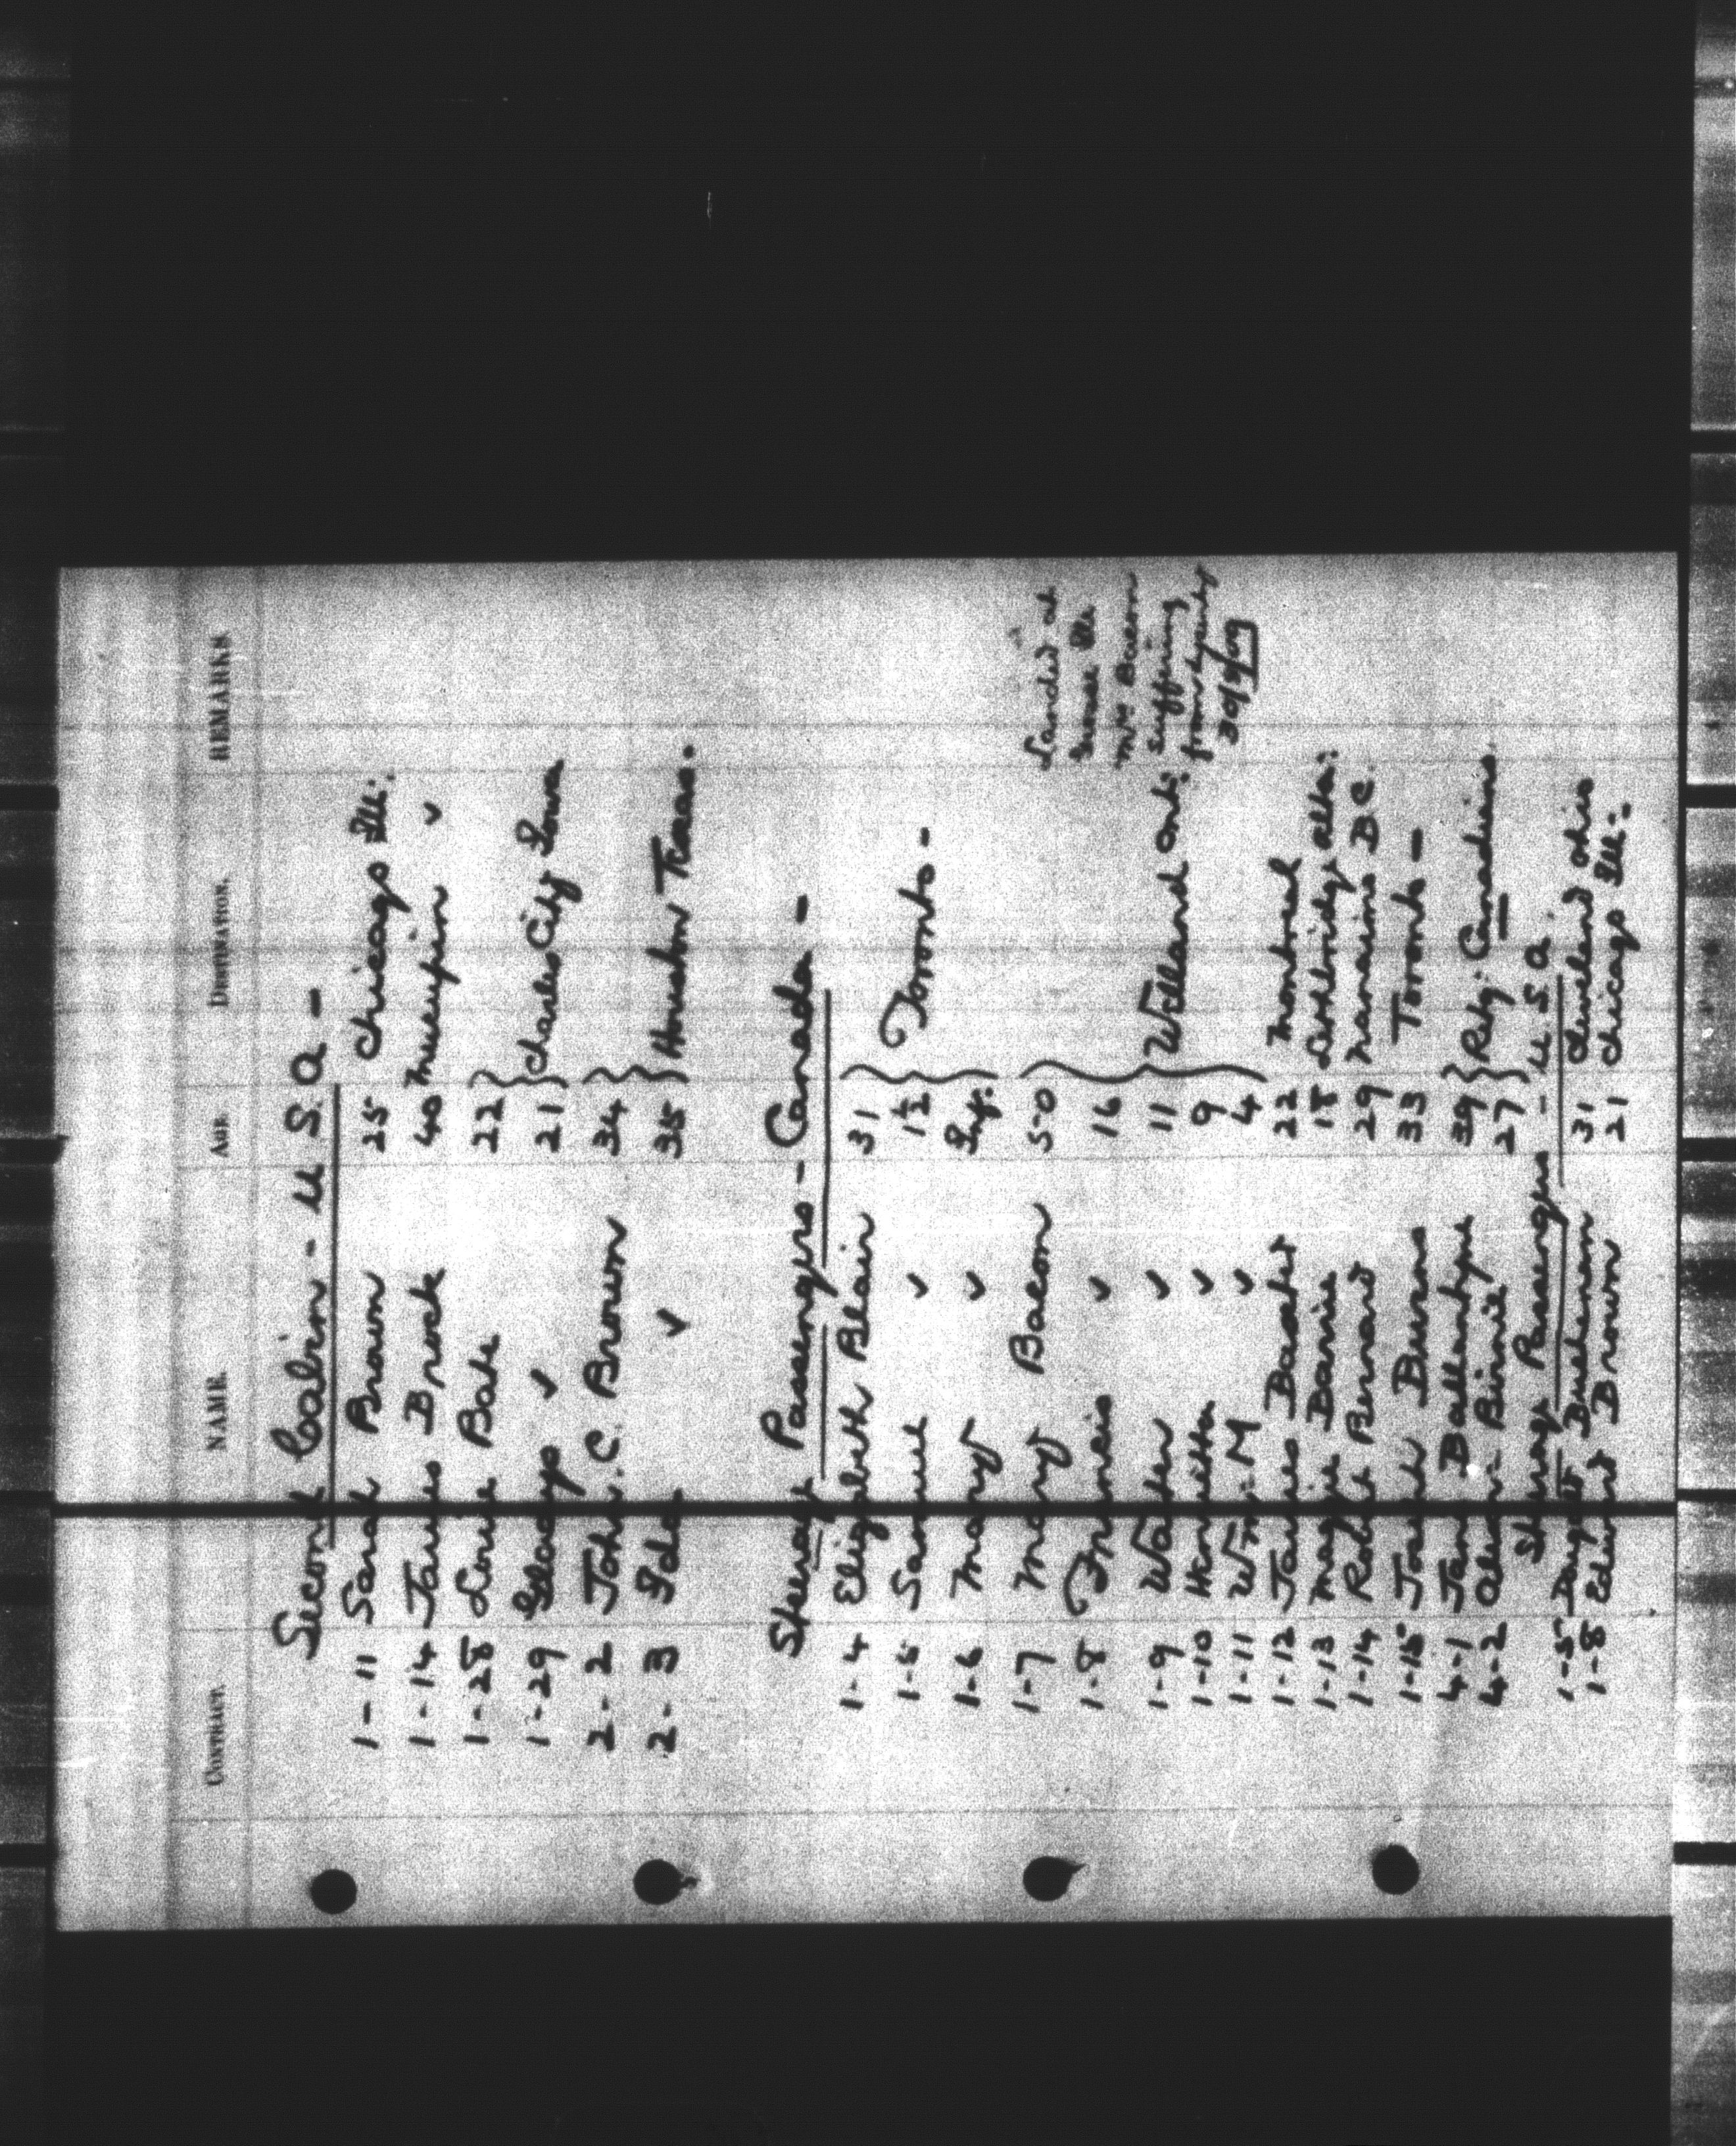 CONTRACT. NAME. AGE. DESTINATION. REMARKS
Second Cabin - U.S.A -
1-11 Sarah Brown 25 Chicago Ill:
1-14 James Brock 40 ✓
1-28 Louie Bate 22
1-29 Gladys ✓ 21 } Charles City Iowa
2-2 John. C. Brown 34
2-3 Ida ✓ 35 } Houston Texas.
Steerage Passengers - Canada -
1-4 Elizabeth Blair 31
1-5 Samuel ✓ 1½ } Toronto -
1-6 Mary ✓ Inf:
1-7 Mary Bacon 50 Landed at
1-8 Francis ✓ 16 Grosse Ile
Mrs Bacon
1-9 Walter ✓ 11 } Welland Ont: suffering
1-10 Henrietta ✓ 9 from
1-11 Wm. M ✓ 4 30/4/09
1-12 James Baxter 22 Montreal
1-13 Maggie Barrie 18 Lethbridge Alta:
1-14 Robt Bernard 29 Nanaimo B.C.
1-15 Joseph Burns 33 Toronto -
4-1 Jane Ballantyne 39
4-2 Binnie 27 } Retg: Canadians
Steerage Passengers - U.S.A.
1-5 Buchanan 31 Cleveland Ohio
1-8 Edward Brown 21 Chicago Ill: